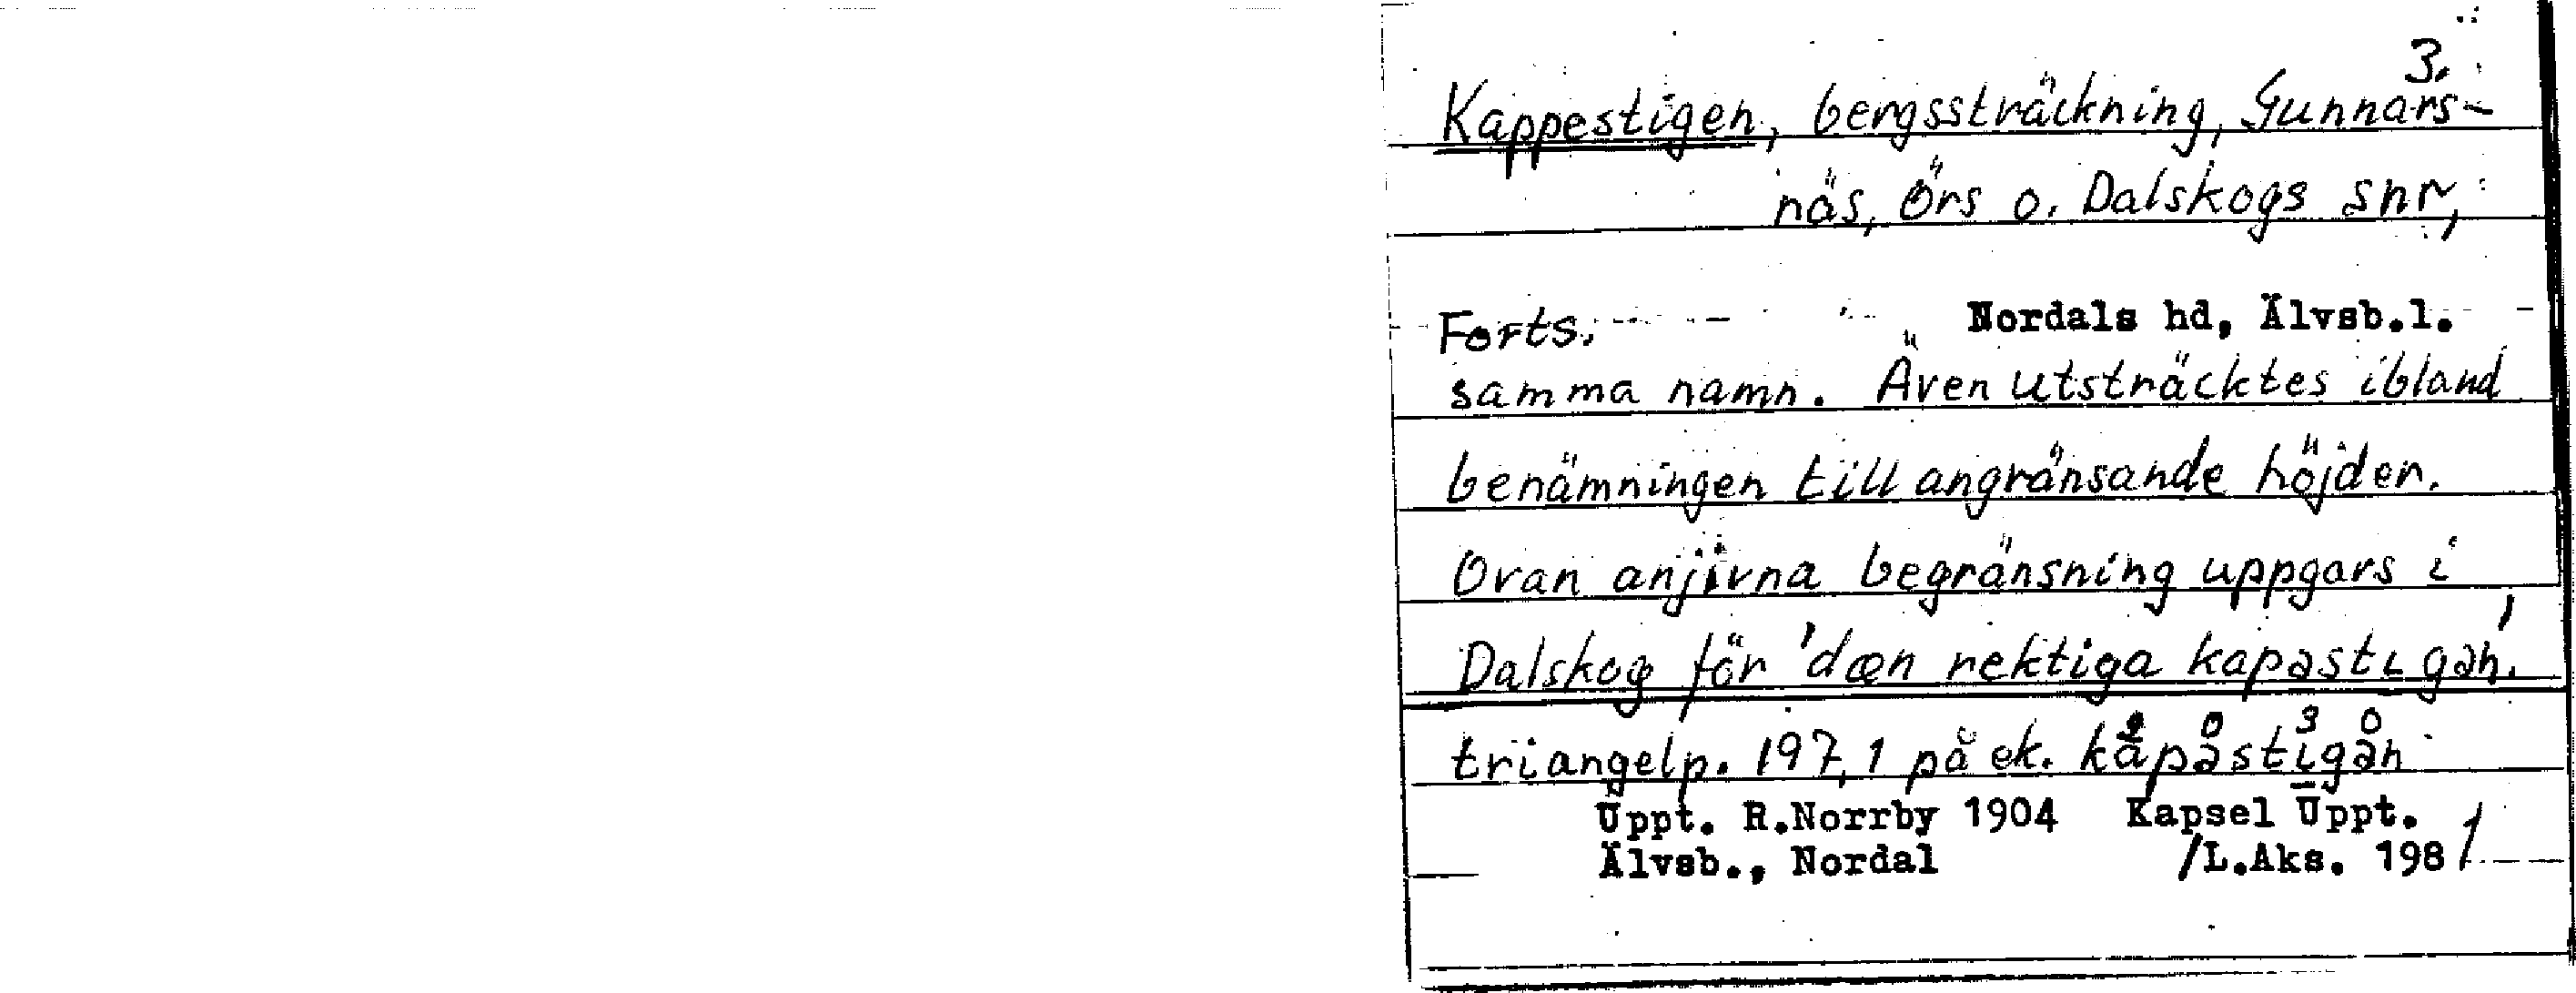 3.
Kappestigen, bergssträckning, Gunnars-
näs, Örs o. Dalskogs snr,
Nordals hd, Älvsb.l.
Forts.
samma namn. Även utsträcktes ibland
benämningen till angränsande höjder.
Ovan anjivna begränsning uppgavs i
Dalskog för 'dæn rektiga kapəstɩgən'.
triangelp. 197,1 på ek. kapəstɩgən
Uppt. R.Norrby 1904 Kapsel Uppt.
Älvsb., Nordal /L.Aks. 1981